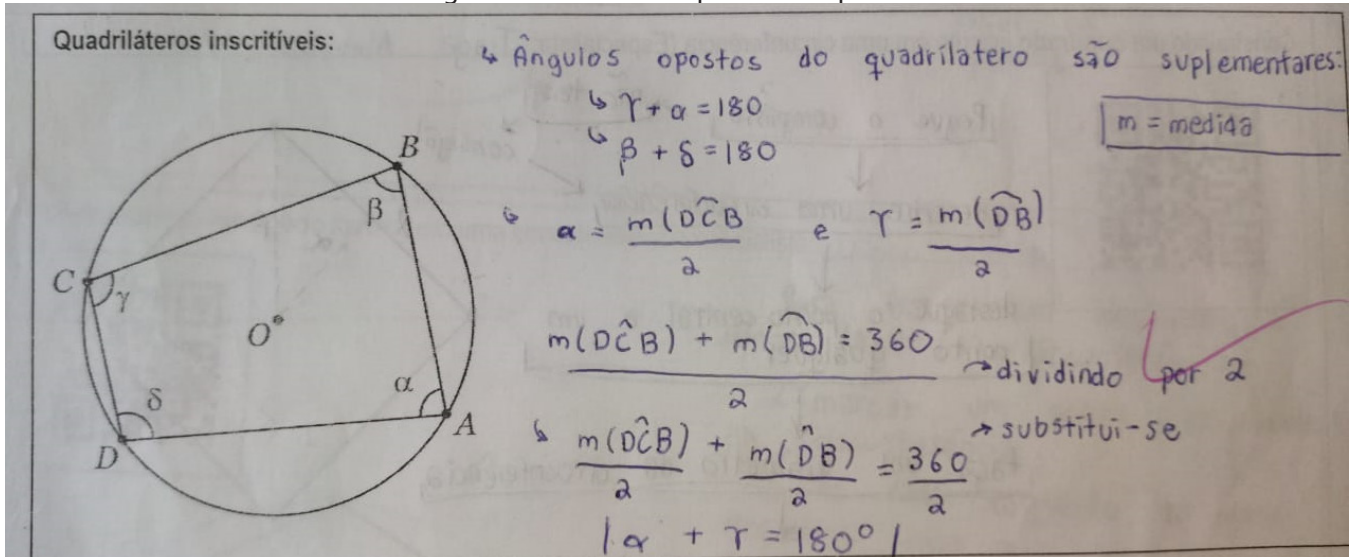 Quadriláteros inscritíveis:
↳ Ângulos opostos do quadrilatero são suplementares:
↳ γ + α = 180
↳ β + δ = 180
m = medida
↳ α = m(DĈB / 2 e γ = m(D͡B) / 2
m(DĈB) + m(D͡B) = 360 / 2 → dividindo por 2
→ substitui-se
↳ m(DĈB) / 2 + m(D̂B) / 2 = 360 / 2
| α + γ = 180° |
B
β
C
γ
O
α
δ
A
D